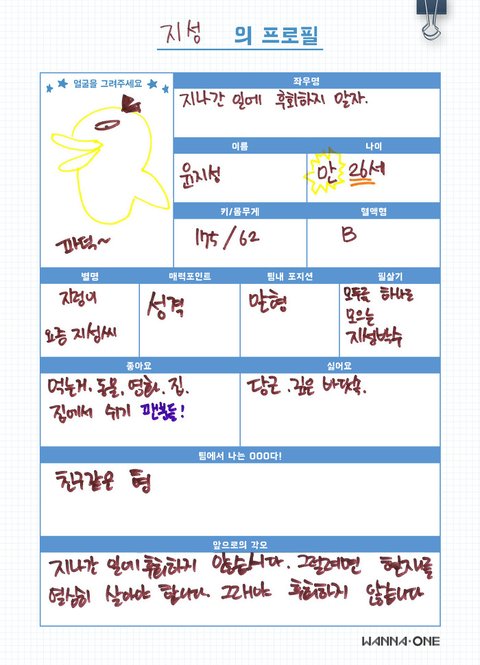 지성 의 프로필
얼굴을 그려주세요
파덕~
좌우명
지나간 일에 후회하지 말자.
이름
윤지성
나이
만 26세
키/몸무게
175/62
혈액형
B
별명
지정이
요즘 지성씨
매력포인트
성격
팀내 포지션
맏형
필살기
모두를 하나로
모으는
지성박수
좋아요
먹는거, 동물, 영화, 집.
집에서 쉬기 팬분들!
싫어요
당근. 깊은 바닷속.
팀에서 나는 OOO다!
친구같은 형
앞으로의 각오
지나간 일에 후회하지 않습니다. 그럴려면 현재를
열심히 살아야 합니다. 그래야 후회하지 않습니다
WANNA·ONE